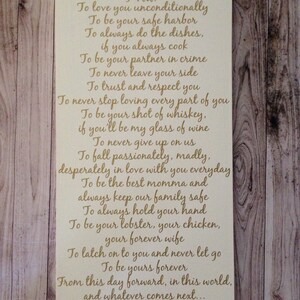 To love you unconditionally
To be your safe harbor
To always do the dishes,
if you always cook
To be your partner in crime
To never leave your side
To trust and respect you
To never stop loving every part of you
To be your shot of whiskey,
if you'll be my glass of wine
To never give up on us
To fall passionately, madly,
desperately in love with you everyday
To be the best momma and
always keep our family safe
To always hold your hand
To be your lobster, your chicken,
your forever wife
To latch on to you and never let go
To be yours forever
From this day forward, in this world,
and whatever comes next...